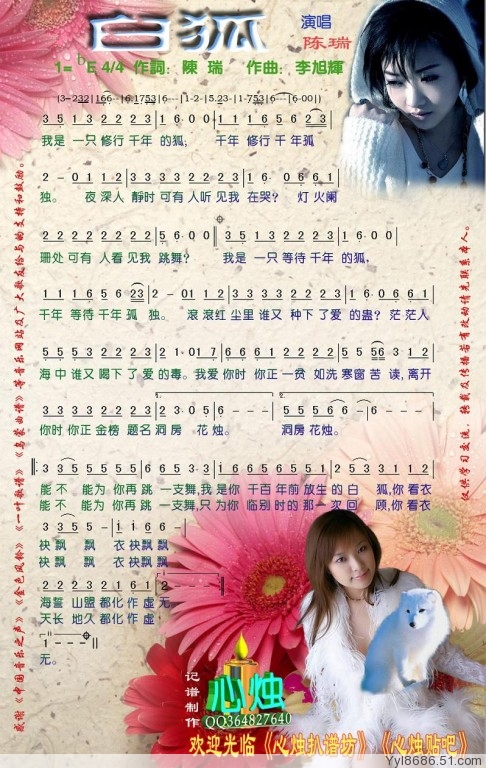 白狐
演唱
陈瑞
1=ᵇE 4/4 作詞: 陳 瑞 作曲: 李旭輝
|3-232|106··|6.1753|6---|1-2-|5.23-|1-753|6--(6-00)|
3 5 1 3 2 2 2 3 | 1 6·0 0 | 3 3 2 1 6 5 6 2 3 |
我是 一只 修行 千年 的狐, 千年 修行 千 年孤
2 - 0 1 1 2 | 3 3 3 2 3 3 2 3 | 5 6· 0 0 | 1 1 6 1
独。 夜深人 静时 可有 人听 见我 在哭? 灯 火阑
2 2 2 2 2 2 2 3 | 5 6·5 0 0 | 3 5 1 3 2 2 2 3 | 1 6·0 0 |
珊处 可有 人看 见我 跳舞? 我是 一只 等待 千年 的狐,
1 1 1 6 5 6 23 | 2 - 0 1 1 2 | 3 3 3 2 3 3 2 3 | 5 6· 6 1 2 |
千年 等待 千年 孤 独。 滚 滚红 尘里 谁又 种下 了 爱 的蛊? 茫茫人
5 5 5 3 2 2 2 3 | 2 1·0 3 2 | 1 6 6 1 2 2 2 2 | 5 5 56 3 1 2 |
海中 谁又 喝下 了 爱 的毒。我爱 你时 你正 一贫 如洗 寒窗 苦 读, 离开
3 3 3 2 3 2 2 3 | 2 3 0 5 | 6 - - - | 2 5 0 5 | 6 - - - |
你时 你正 金榜 题名 洞房 花烛。 洞房 花烛。
能 不 能为 你再 跳 一支舞,我是 你 千百 年前 放生 的 白 狐,你 看衣
能 不 能为 你再 跳 一支舞,只为 你 临别 时的 那一 次 回 顾,你 看衣
3 3 5 5 - | 1 1 6 6 - |
袂飘 飘 衣袂飘飘
袂飘 飘 衣袂飘飘
海誓 山盟 都化 作虚 无。
天长 地久 都化 作虚
1 - - -
无。
记谱制作
心烛
QQ364827640
欢迎光临《心烛扒谱坊》《心烛贴吧》
感谢《中国音乐之声》《金色风铃》《一叶歌谱》《乌蒙曲谱》等音乐网站及广大歌友给与的支持和鼓励。
仅供学习交流，转载及传播若有改动请先联系本人。
Yyl8686.51.com